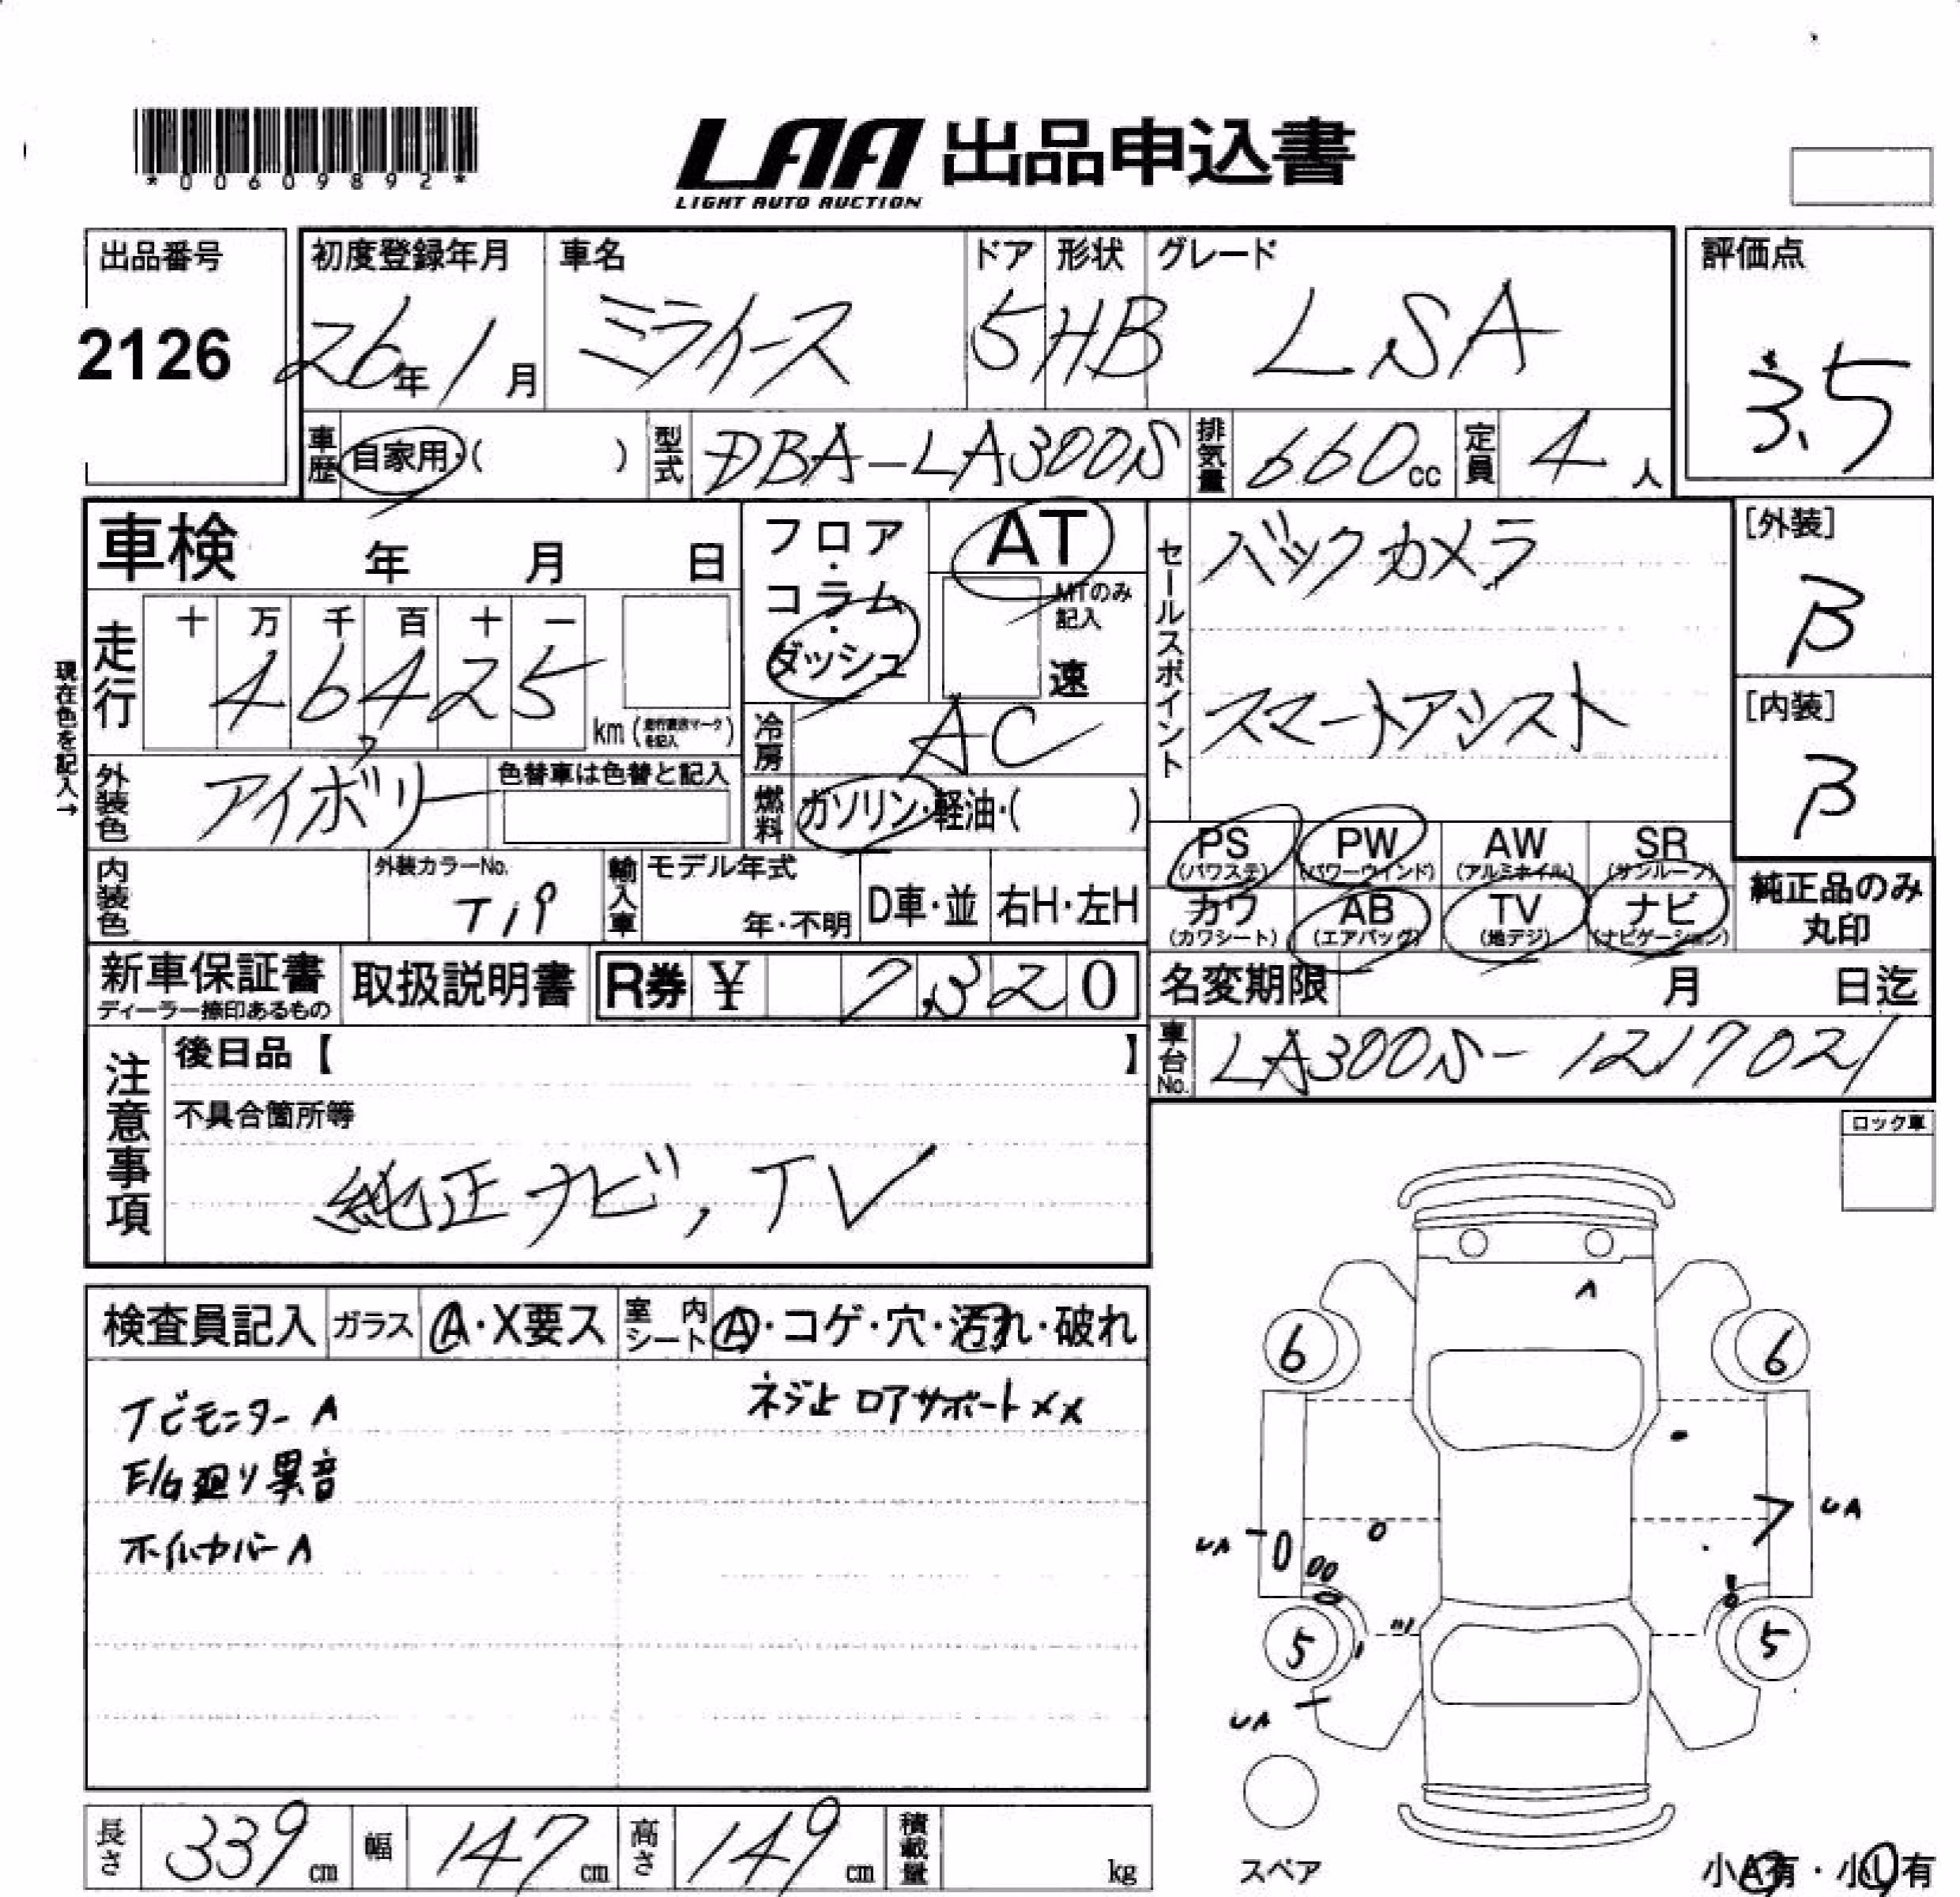 *00609892*
LAA 出品申込書
LIGHT AUTO AUCTION
出品番号
2126
初度登録年月
26年1月
車名
ミライース
ドア
5
形状
HB
グレード
LSA
評価点
3.5
車歴
自家用・( )
型式
DBA-LA300S
排気量
660cc
定員
4人
車検 年 月 日
フロア・コラム・ダッシュ
AT
MTのみ記入
速
セールスポイント
バックカメラ
スマートアシスト
[外装]
B
[内装]
B
現在色を記入→
走行
十 万 千 百 十 一
4 6, 4 2 5
km
冷房
AC
外装色
アイボリー
色替車は色替と記入
燃料
ガソリン・軽油・( )
PS
(パワステ)
PW
(パワーウインド)
AW
(アルミホイル)
SR
(サンルーフ)
カワ
(カワシート)
AB
(エアバッグ)
TV
(地デジ)
ナビ
(ナビゲーション)
純正品のみ
丸印
内装色
外装カラーNo.
T19
輸入車
モデル年式
年・不明
D車・並
右H・左H
新車保証書
ディーラー捺印あるもの
取扱説明書
R券 ¥ 7,320
名変期限 月 日迄
車台No.
LA300S-1217021
注意事項
後日品【 】
不具合箇所等
純正ナビ, TV
ロック車
検査員記入
ガラス
A・X要ス
室内シート
A・コゲ・穴・汚れ・破れ
ナビモニターA
ネジ止 ロアサポートメメ
E/G廻り異音
ホイルカバーA
6
6
UA
UA
5
5
UA
スペア
長さ 339cm
幅 147cm
高さ 149cm
積載量 kg
小A有・小U有